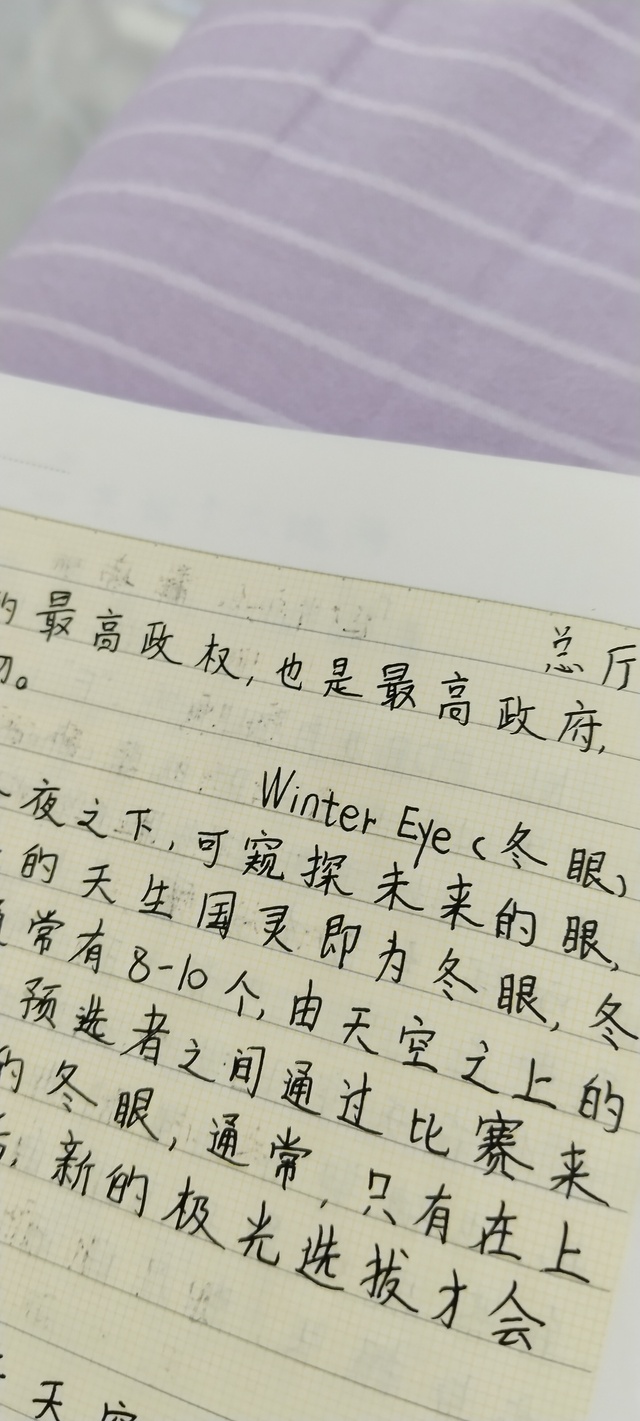 总厅
的最高政权,也是最高政府,
。
Winter Eye(冬眼)
夜之下,可窥探未来的眼,
的天生国灵即为冬眼,冬
常有8-10个,由天空之上的
预选者之间通过比赛来
的冬眼,通常,只有在上
,新的极光选拔才会
天空